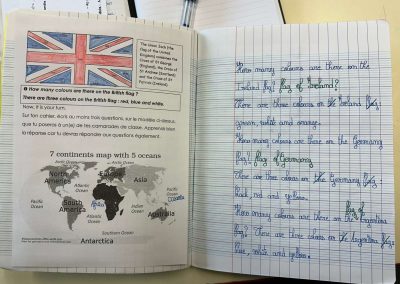 The Union Jack (the
flag of England),
unites the
Cross of St George
(England), the Cross of
St Andrew (Scotland)
and the Cross of St
Patrick (Ireland)
How many colours are there on the British flag ?
There are three colours on the British flag : red, blue and white.
Now, it is your turn.
Sur ton cahier, écris au moins trois questions, sur le modèle ci-dessus,
que tu poseras à un(e) des camarades de classe. Apprends bien
la réponse car tu devras répondre aux questions également.
7 continents map with 5 oceans
Arctic Ocean
North America
Europe
Asia
Pacific Ocean
Atlantic Ocean
Pacific Ocean
Africa
Oceania
South America
Atlantic Ocean
Indian Ocean
Australia
Southern Ocean
Antarctica
How many colours are there on the
Ireland flag? flag of Ireland?
There are three colours on the Ireland flag:
green, white and orange.
How many colours are there on the Germany
flag? flag of Germany
There are three colours on the Germany flag:
black, red and yellow.
How many colours are there on the flag of Argentina
flag? There are three colours on the Argentina flag:
blue, white and yellow.